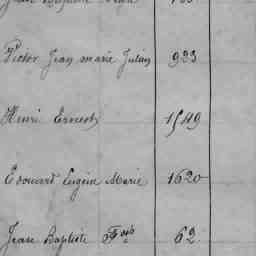 Jean Baptiste
Victor Jean marie Julien 923
Henri Ernest 1549
Edouard Eugène Marie 1620
Jean Baptiste Fois 62